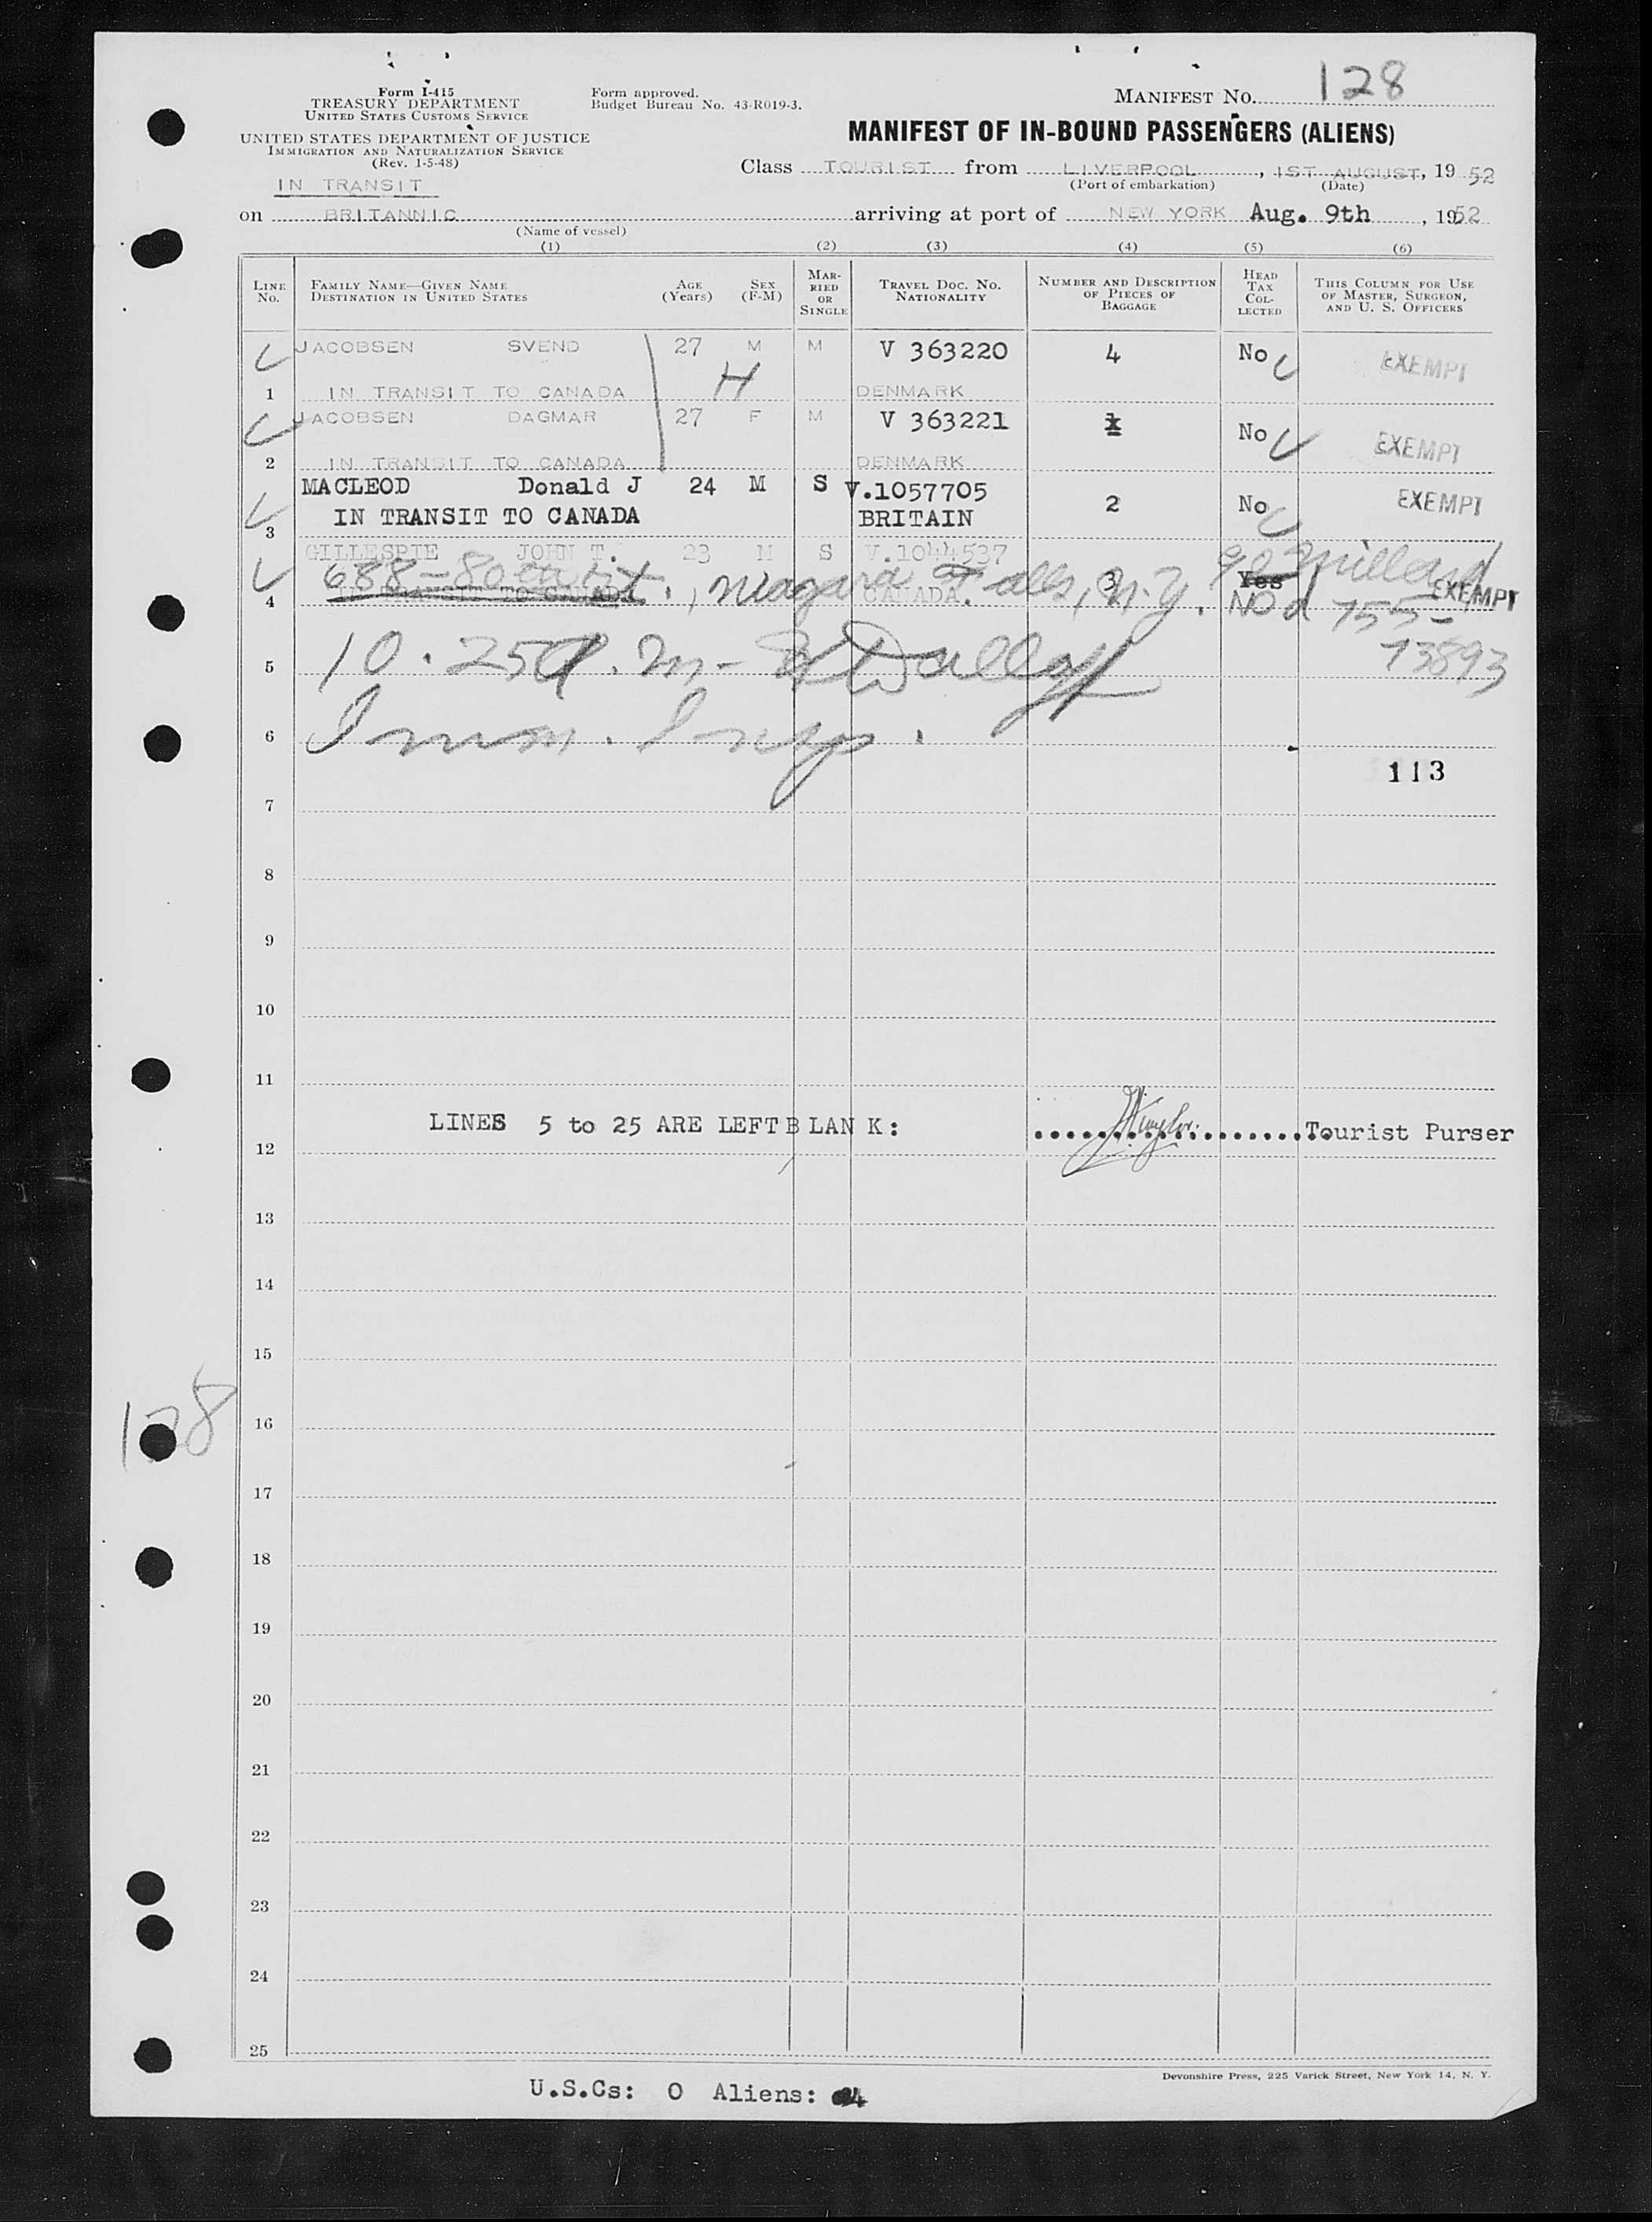 Form I-415
TREASURY DEPARTMENT
UNITED STATES CUSTOMS SERVICE
UNITED STATES DEPARTMENT OF JUSTICE
IMMIGRATION AND NATURALIZATION SERVICE
(Rev. 1-5-48)
Form approved.
Budget Bureau No. 43-R019-3.
MANIFEST NO. 128
MANIFEST OF IN-BOUND PASSENGERS (ALIENS)
Class TOURIST from LIVERPOOL, 1ST AUGUST, 19 52
(Port of embarkation) (Date)
IN TRANSIT
on BRITANNIC arriving at port of NEW YORK Aug. 9th, 1952
(Name of vessel)
(1) (2) (3) (4) (5) (6)
LINE NO. FAMILY NAME—GIVEN NAME DESTINATION IN UNITED STATES AGE (Years) SEX (F-M) MARRIED OR SINGLE TRAVEL DOC. NO. NATIONALITY NUMBER AND DESCRIPTION OF PIECES OF BAGGAGE HEAD TAX COLLECTED THIS COLUMN FOR USE OF MASTER, SURGEON, AND U. S. OFFICERS
JACOBSEN SVEND 27 M M V 363220 4 No EXEMPT
1 IN TRANSIT TO CANADA H DENMARK
JACOBSEN DAGMAR 27 F M V 363221 No EXEMPT
2 IN TRANSIT TO CANADA DENMARK
MACLEOD Donald J 24 M S V.1057705 2 No EXEMPT
3 IN TRANSIT TO CANADA BRITAIN
GILLESPIE JOHN T. 23 M S V.1044537 3 Yes EXEMPT
4 IN TRANSIT TO CANADA CANADA. NO
688-80th St., Niagara Falls, N.Y.
755-
73893
5 10.25 A.M-
6 Imm. Insp.
113
7
8
9
10
11
LINES 5 to 25 ARE LEFT BLANK: Tourist Purser
12
13
14
15
128
16
17
18
19
20
21
22
23
24
25
Devonshire Press, 225 Varick Street, New York 14, N. Y.
U.S.Cs: 0 Aliens: 4